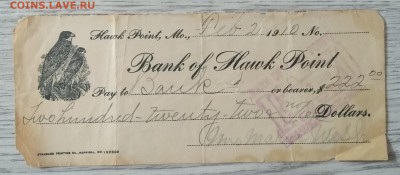 COINS.SU
Hawk Point, Mo., Feb 2 1910 No.
Bank of Hawk Point
Pay to Bank or bearer, $ 222.00
Two hundred - twenty-two no Dollars.
STANDARD PRINTING CO., HANNIBAL, MO.